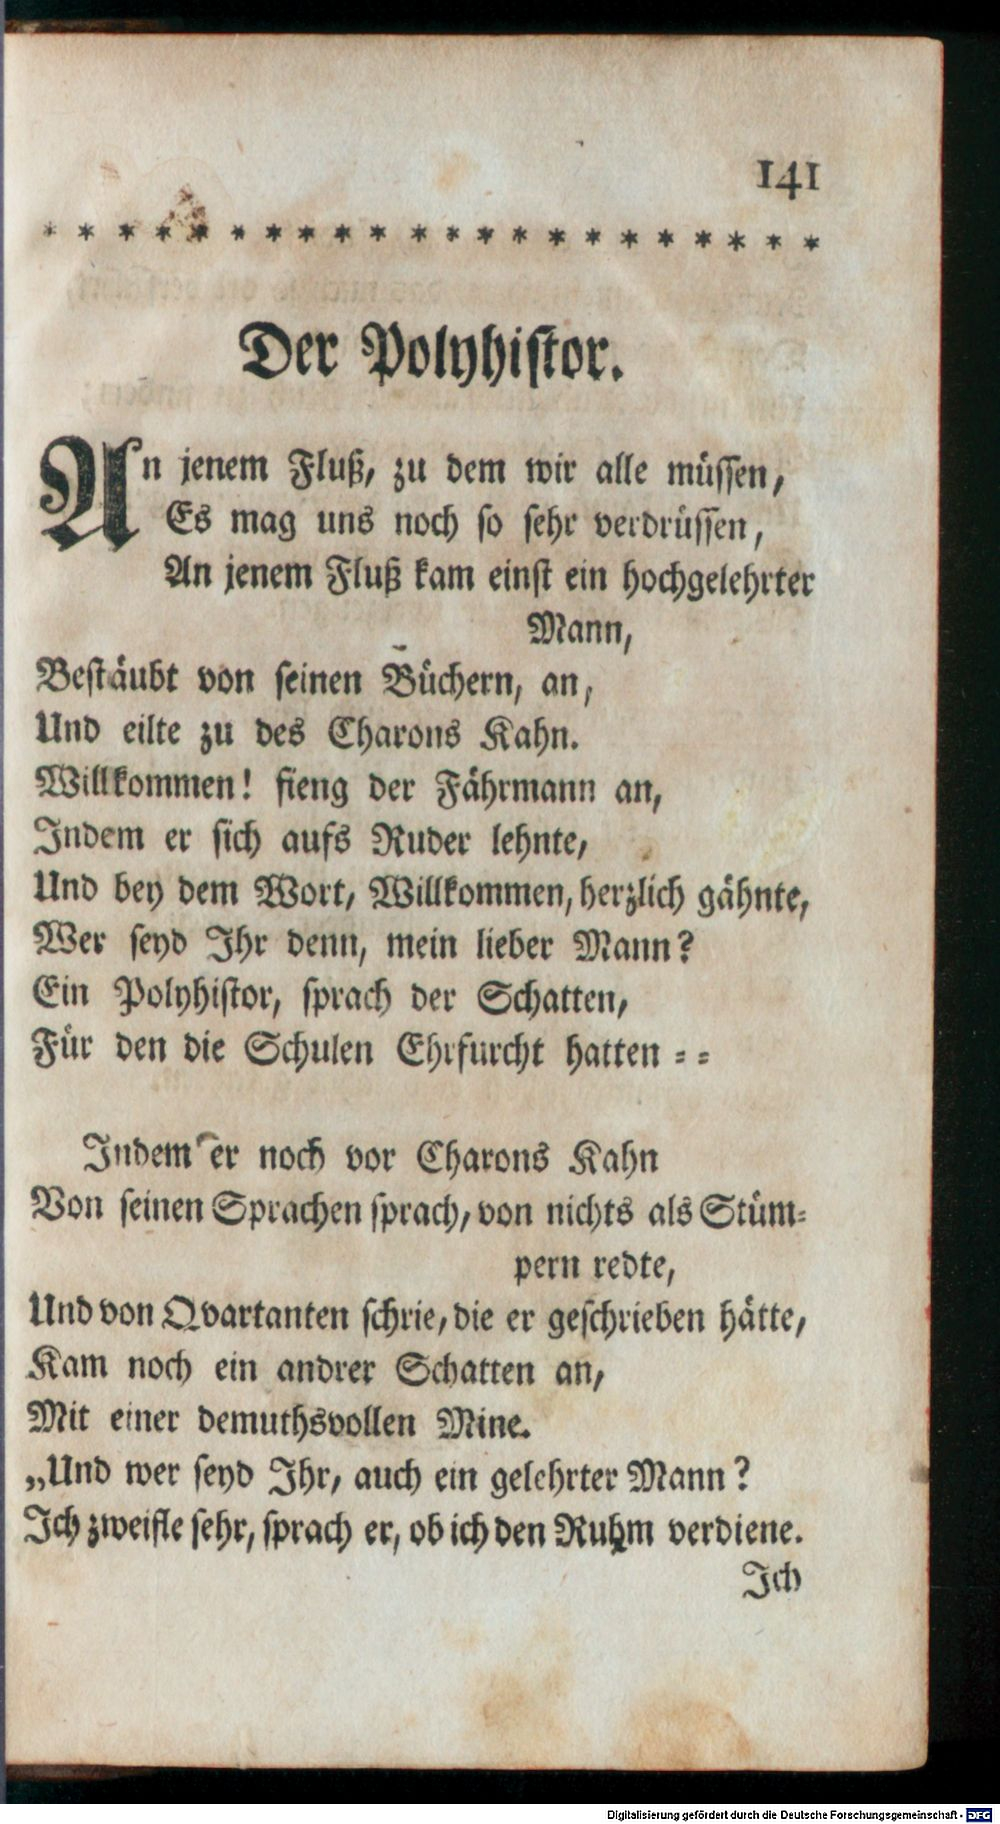 141
* * * * * * * * * * * * * * * * * * * * * *
Der Polyhistor.
An jenem Fluß, zu dem wir alle müssen,
Es mag uns noch so sehr verdrüssen,
An jenem Fluß kam einst ein hochgelehrter
Mann,
Bestäubt von seinen Büchern, an,
Und eilte zu des Charons Kahn.
Willkommen! fieng der Fährmann an,
Indem er sich aufs Ruder lehnte,
Und bey dem Wort, Willkommen, herzlich gähnte,
Wer seyd Ihr denn, mein lieber Mann?
Ein Polyhistor, sprach der Schatten,
Für den die Schulen Ehrfurcht hatten = =
Indem er noch vor Charons Kahn
Von seinen Sprachen sprach, von nichts als Stüm=
pern redte,
Und von Qvartanten schrie, die er geschrieben hätte,
Kam noch ein andrer Schatten an,
Mit einer demuthsvollen Mine.
„Und wer seyd Ihr, auch ein gelehrter Mann?
Ich zweifle sehr, sprach er, ob ich den Ruhm verdiene.
Ich
Digitalisierung gefördert durch die Deutsche Forschungsgemeinschaft - DFG